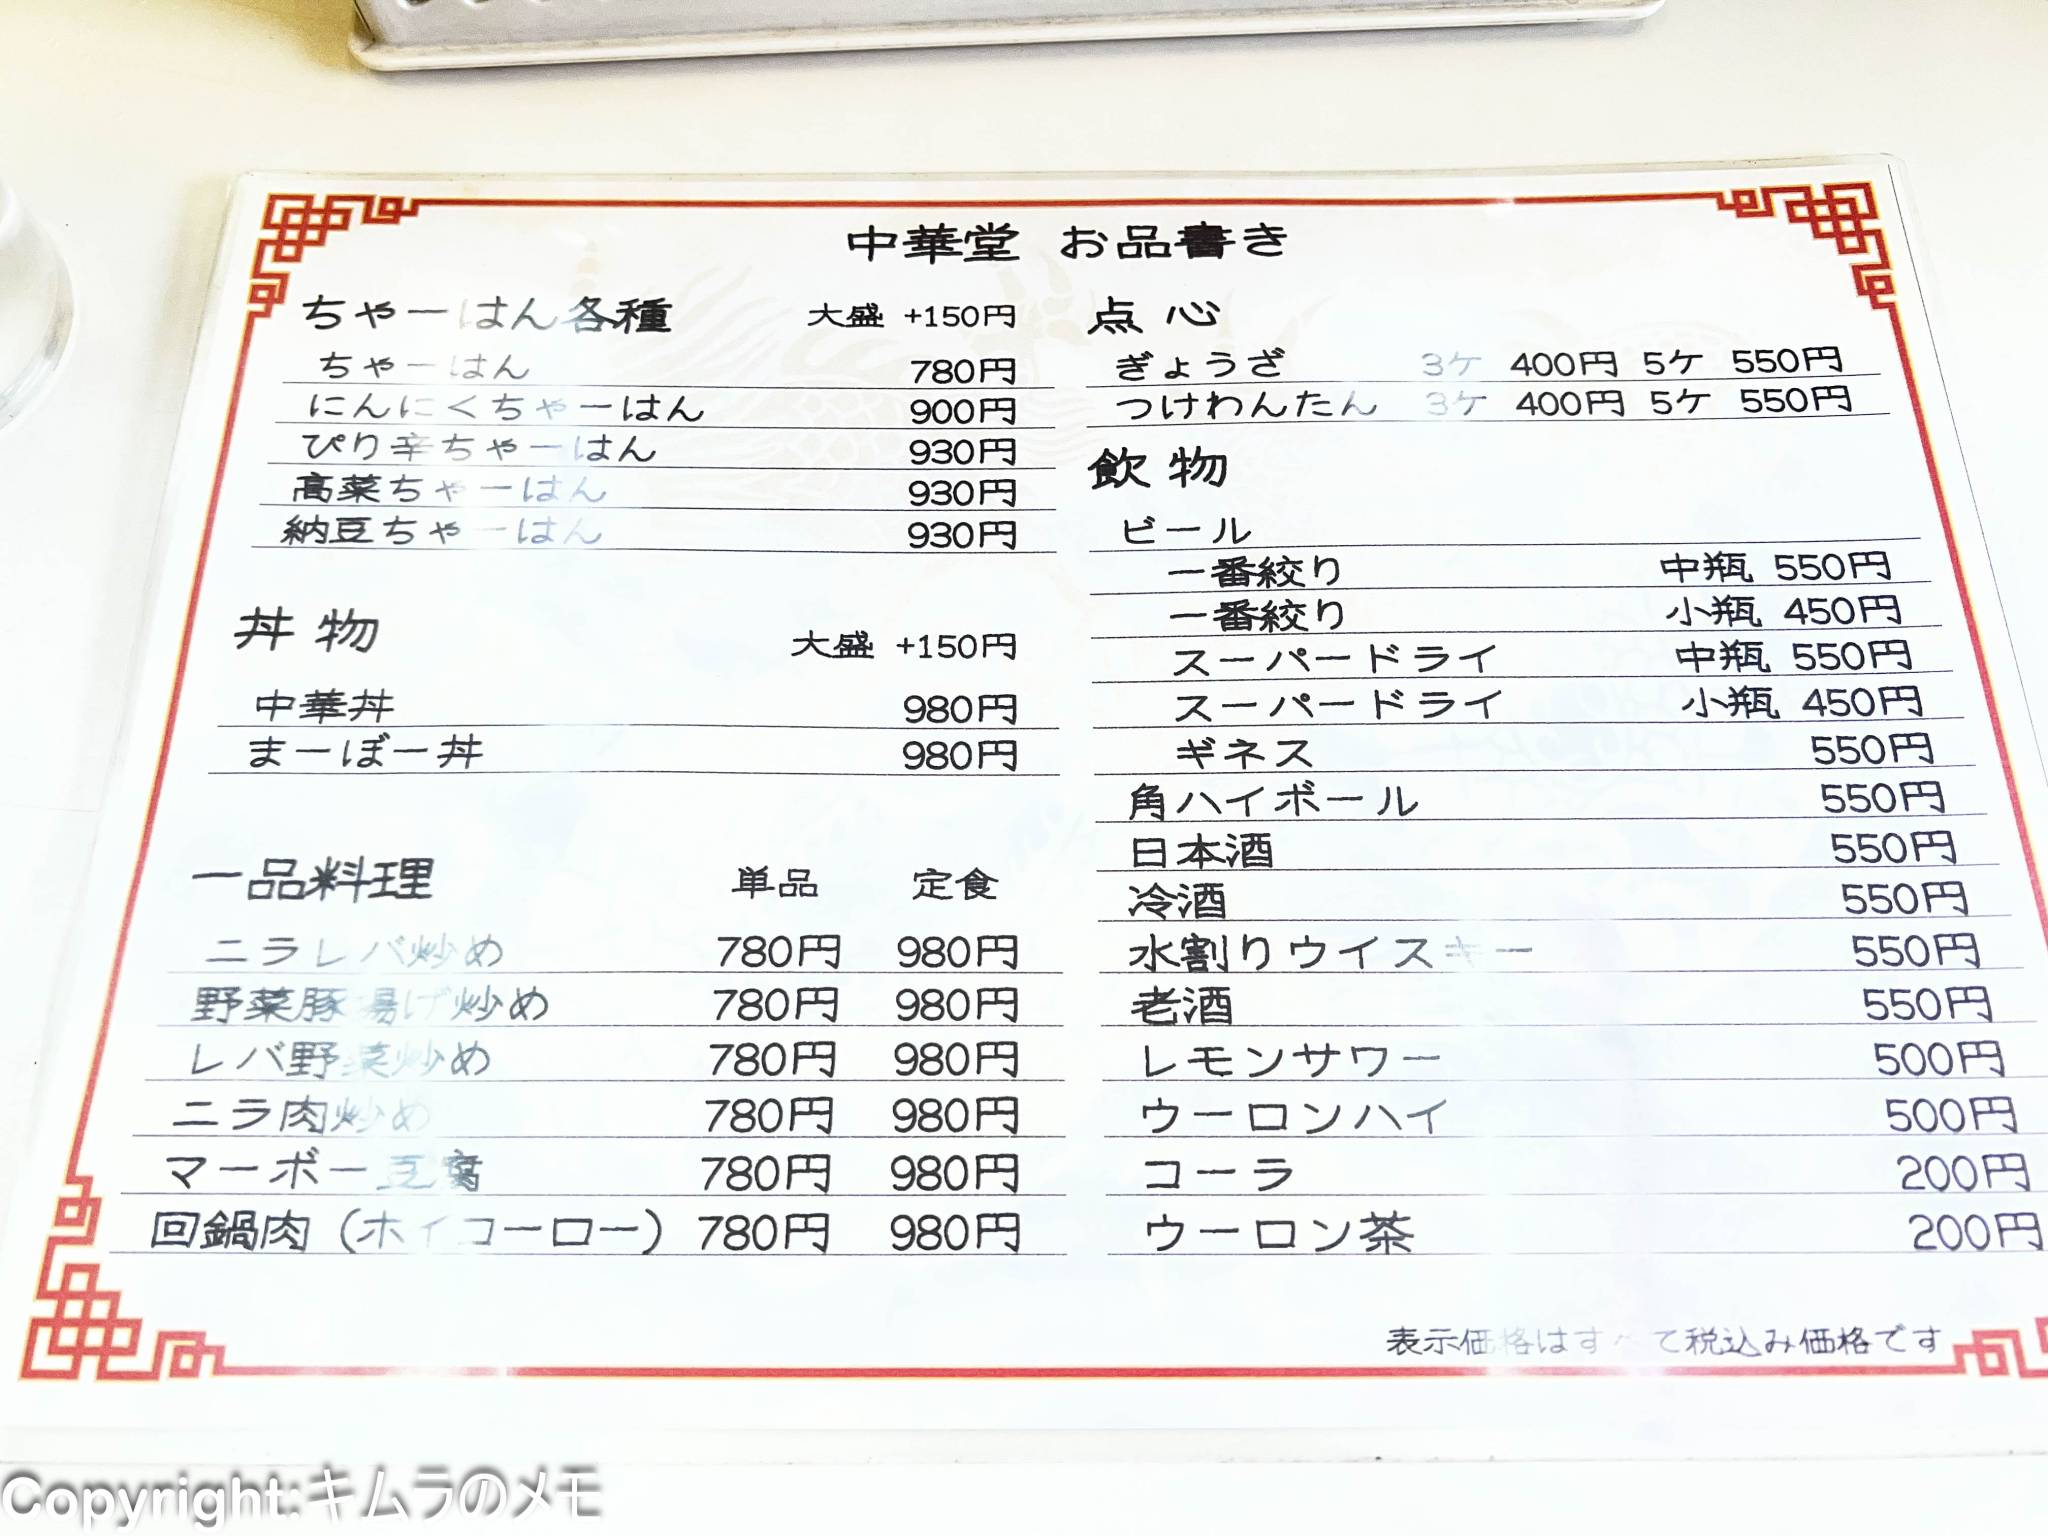 中華堂 お品書き
ちゃーはん各種 大盛 +150円
ちゃーはん 780円
にんにくちゃーはん 900円
ぴり辛ちゃーはん 930円
高菜ちゃーはん 930円
納豆ちゃーはん 930円
丼物 大盛 +150円
中華丼 980円
まーぼー丼 980円
一品料理 単品 定食
ニラレバ炒め 780円 980円
野菜豚揚げ炒め 780円 980円
レバ野菜炒め 780円 980円
ニラ肉炒め 780円 980円
マーボー豆腐 780円 980円
回鍋肉（ホイコーロー） 780円 980円
点心
ぎょうざ 3ケ 400円 5ケ 550円
つけわんたん 3ケ 400円 5ケ 550円
飲物
ビール
一番絞り 中瓶 550円
一番絞り 小瓶 450円
スーパードライ 中瓶 550円
スーパードライ 小瓶 450円
ギネス 550円
角ハイボール 550円
日本酒 550円
冷酒 550円
水割りウイスキー 550円
老酒 550円
レモンサワー 500円
ウーロンハイ 500円
コーラ 200円
ウーロン茶 200円
表示価格はすべて税込み価格です
Copyright:キムラのメモ